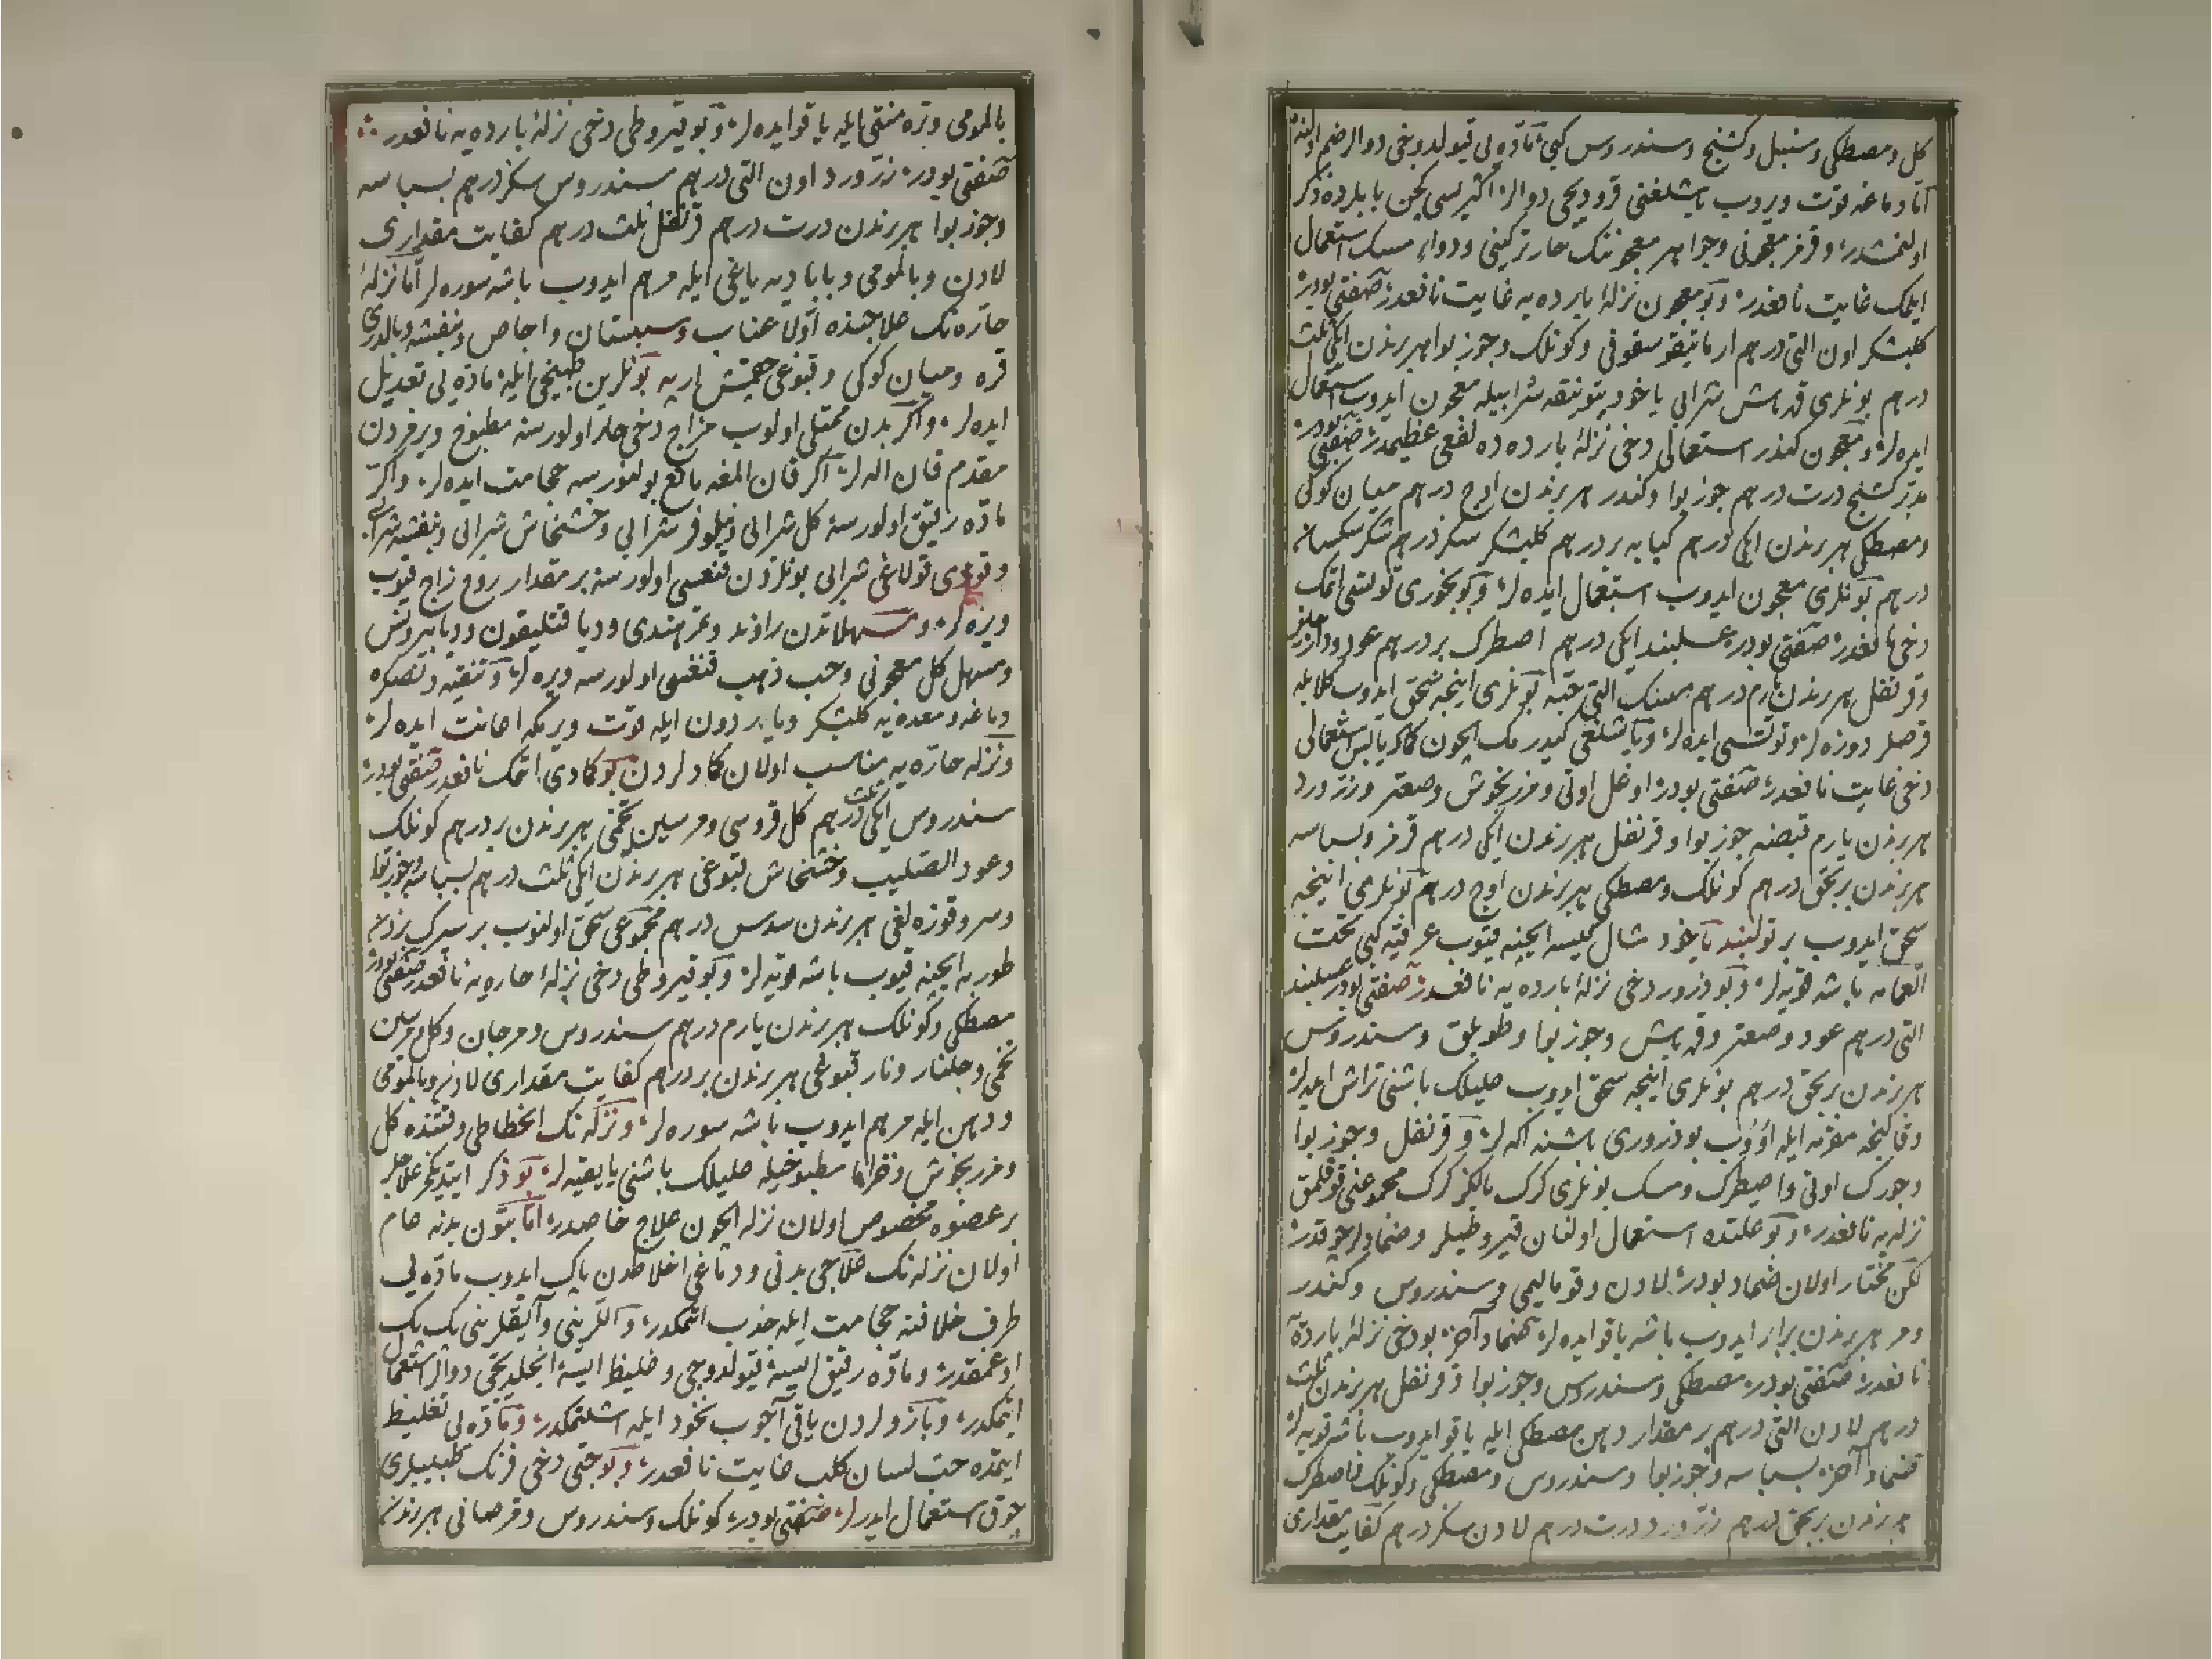 كل ومصطكى وسنبل وكشنج وسندروس كبى اما مادّه لى قيولدوجى دوالر ضم اولنه
امّا دماغه قوت ويروب ياشلغنى قوروديجى دوالر اكثريسى كچن بابلرده ذكر
اولنمشدر و قرفز معجونى وجواهر معجوننك حار تركيبنى ودواء مسك استعمال
ايلمك غايت نافعدر وبو معجون نزلهٔ بارده يه غايت نافعدر صفتى بودر
كلبشكر اون التى درهم ارماتيقو سقوفى وكونلك وجوز بوا هربرندن ايكى ثلث
درهم بونلرى قره باش شرابى ياخود بتونتقه شرابيله معجون ايدوب استعمال
ايده لر ومعجون كندر استعمالى دخى نزلهٔ بارده ده نفعى عظيمدر صفتى بودر
مدبّر كشنج درت درهم جوز بوا وكندر هربرندن اوچ درهم ميان كوكى
ومصطكى هربرندن ايكى درهم كبابه بر درهم كلبشكر سكز درهم شكر سكسان
درهم بونلرى معجون ايدوب استعمال ايده لر وبو بخورى توتسى اتمك
دخى نافعدر صفتى بودر عسلبند ايكى درهم اصطرك بر درهم عود
وقرنفل هربرندن يارم درهم مسك التى حبّه بونلرى اينجه سحق ايدوب كلابله
قرصلر دوزه لر وتوتسى ايده لر وياشلغى كيدرمك ايچون كماد يابس استعمالى
دخى غايت نافعدر صفتى بودر اوغل اوتى ومرزنجوش وصعتر وزرّ ورد
هربرندن يارم قبضه جوز بوا وقرنفل هربرندن ايكى درهم قرفز وبسباسه
هربرندن بر بچق درهم كونلك ومصطكى هربرندن اوچ درهم بونلرى اينجه
سحق ايدوب بر تولبند ياخود شال كيسه ايچينه قيوب عرقيّه كبى تحت
العمامه باشه قويه لر وبو ذرور دخى نزلهٔ بارده يه نافعدر صفتى بودر عسلبند
التى درهم عود وصعتر وقره باش وجوز بوا وطوبلق وسندروس
هربرندن بر بچق درهم بونلرى اينجه سحق ايدوب عليلك باشنى تراش ايده لر
وقالينجه مقرمه ايله اووب بو ذرورى باشنه اكه لر وقرنفل وجوز بوا
وجورك اوتى واصطرك ومسك بونلرى كرك يالكز كرك مجموعنى قوقلمق
نزله يه نافعدر وبو علتده استعمال اولنان قيروطيلر وضمادلر چوقدر
لكن مختار اولان ضماد بودر لادن وقوماليمى وسندروس وكندر
ومر هربرندن برابر ايدوب باشه ياقو ايده لر ضماد آخر بو دخى نزلهٔ بارده يه
نافعدر صفتى بودر مصطكى وسندروس وجوز بوا وقرنفل هربرندن ثلث
درهم لادن التى درهم بر مقدار دهن مصطكى ايله ياقو ايدوب باشه قويه لر
ضماد آخر بسباسه وجوز بوا وسندروس ومصطكى وكونلك واصطرك
هربرندن بر بچق درهم زرّ ورد درت درهم لادن سكز درهم كفايت مقدارى
بالمومى وتره منتى ايله ياقو ايده لر وبو قيروطى دخى نزلهٔ بارده يه نافعدر
صفتى بودر زرّ ورد اون التى درهم سندروس سكز درهم بسباسه
وجوز بوا هربرندن درت درهم قرنفل ثلث درهم كفايت مقدارى
لادن وبالمومى وباباديه ياغى ايله مرهم ايدوب باشه سوره لر امّا نزلهٔ
حارّه نك علاجنده اولا عناب وسبستان واجاص وبنفشه وبالدرى
قره وميان كوكى وقبوغى چقمش ارپه بونلرين طبيخى ايله مادّه لى تعديل
ايده لر واكر بدن ممتلى اولوب مزاج دخى حار اولورسه مطبوخ ويرمزدن
مقدم قان اله لر اكر قان المغه مانع بولنورسه حجامت ايده لر واكر
مادّه رقيق اولورسه كل شرابى ونيلوفر شرابى وخشخاش شرابى وبنفشه شرابى
وقوزى قولاغى شرابى بونلردن قنغسى اولورسه بر مقدار روح زاج قيوب
ويره لر ومسهلاتدن راوند وتمر هندى وديا قتليقون وديا پرونس
ومسهل كل معجونى وحب ذهب قنغسى اولورسه ويره لر وتنقيه دنصكره
دماغه ومعده يه كلبشكر وديا ردون ايله قوت ويرمكه اعانت ايده لر
ونزله حارّه يه مناسب اولان كمادلردن بو كمادى اتمك نافعدر صفتى بودر
سندروس ايكى ثلث درهم كل قروسى ومرسين تخمى هربرندن بر درهم كونلك
وعود الصليب وخشخاش قبوغى هربرندن ايكى ثلث درهم بسباسه وجوز بوا
وسرو قوزه لغى هربرندن سدس درهم مجموعى سحق اولنوب بر سيرك بزدن
طوربه ايچينه قيوب باشه قويه لر وبو قيروطى دخى نزلهٔ حاره يه نافعدر صفتى بودر
مصطكى وكونلك هربرندن يارم درهم سندروس ومرجان وكل ومرسين
تخمى وجلنار ونار قبوغى هربرندن بر درهم كفايت مقدارى لادن وبالمومى
ودهن ايله مرهم ايدوب باشه سوره لر ونزله نك انحطاطى وقتنده كل
ومرزنجوش مطبوخيله عليلك باشنى يايقيه لر بو ذكر ايتديكمز علاجلر
بر عضوه مخصوص اولان نزله ايچون علاج خاصدر امّا بتون بدنه عام
اولان نزله نك علاجى بدنى ودماغى اخلاطدن پاك ايدوب مادّه لى
طرف خلافنه حجامت ايله جذب اتمكدر واللرينى وآيقلرينى بك بك
اوغمقدر ومادّه رقيق ايسه قيولدوجى وغليظ ايسه انجلديجى دوالر استعمال
ايتمكدر وبازولردن ياقى آچوب نخود ايله اشلتمكدر ومادّه لى تغليظ
ايتمده حب لسان كلب غايت نافعدر وبو حبّى دخى فرنك طبيبلرى
چوق استعمال ايدرلر صفتى بودر كونلك وسندروس وقرصانى هربرندن